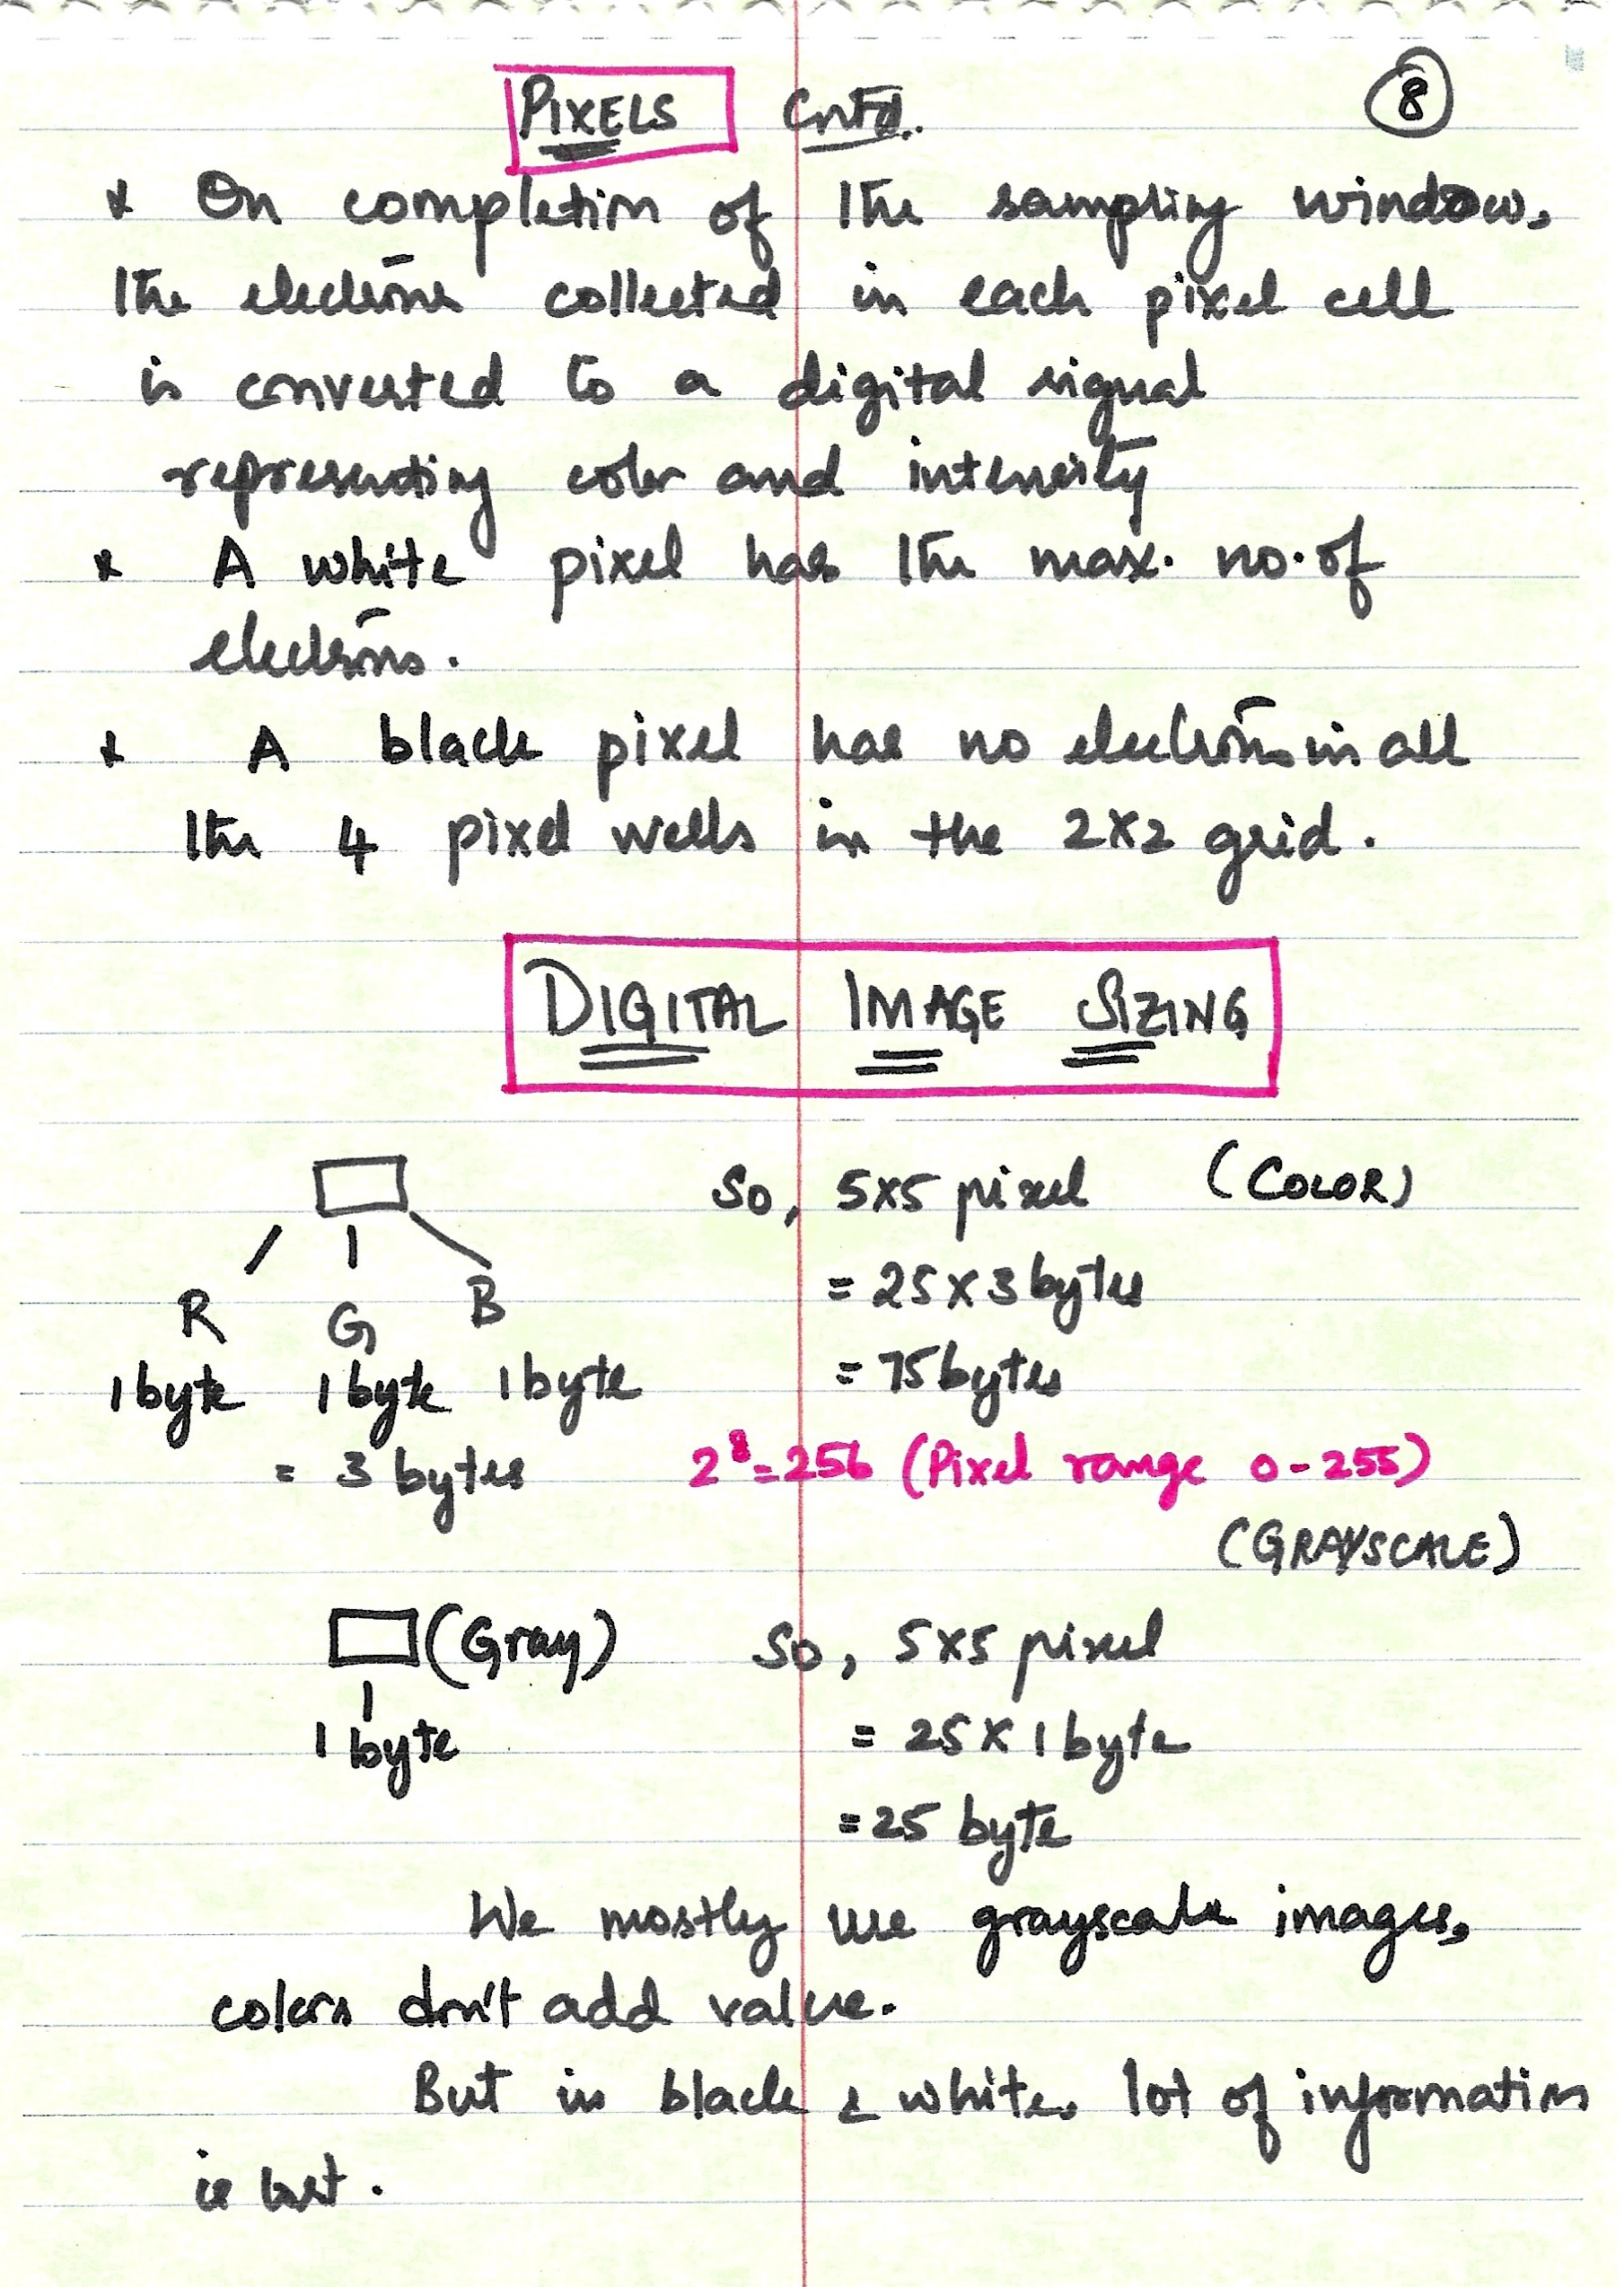 PIXELS Cntd.. 8
x On completion of the sampling window,
the electrons collected in each pixel cell
is converted to a digital signal
representing color and intensity
x A white pixel has the max. no. of
electrons.
x A black pixel has no electrons in all
the 4 pixel wells in the 2x2 grid.
DIGITAL IMAGE SIZING
So, 5x5 pixel (COLOR)
= 25 x 3 bytes
R G B
= 75 bytes
1 byte 1 byte 1 byte
= 3 bytes 2⁸=256 (Pixel range 0-255)
(GRAYSCALE)
(Gray) So, 5x5 pixel
1 byte = 25 x 1 byte
= 25 byte
We mostly use grayscale images,
colors don't add value.
But in black & white, lot of information
is lost.